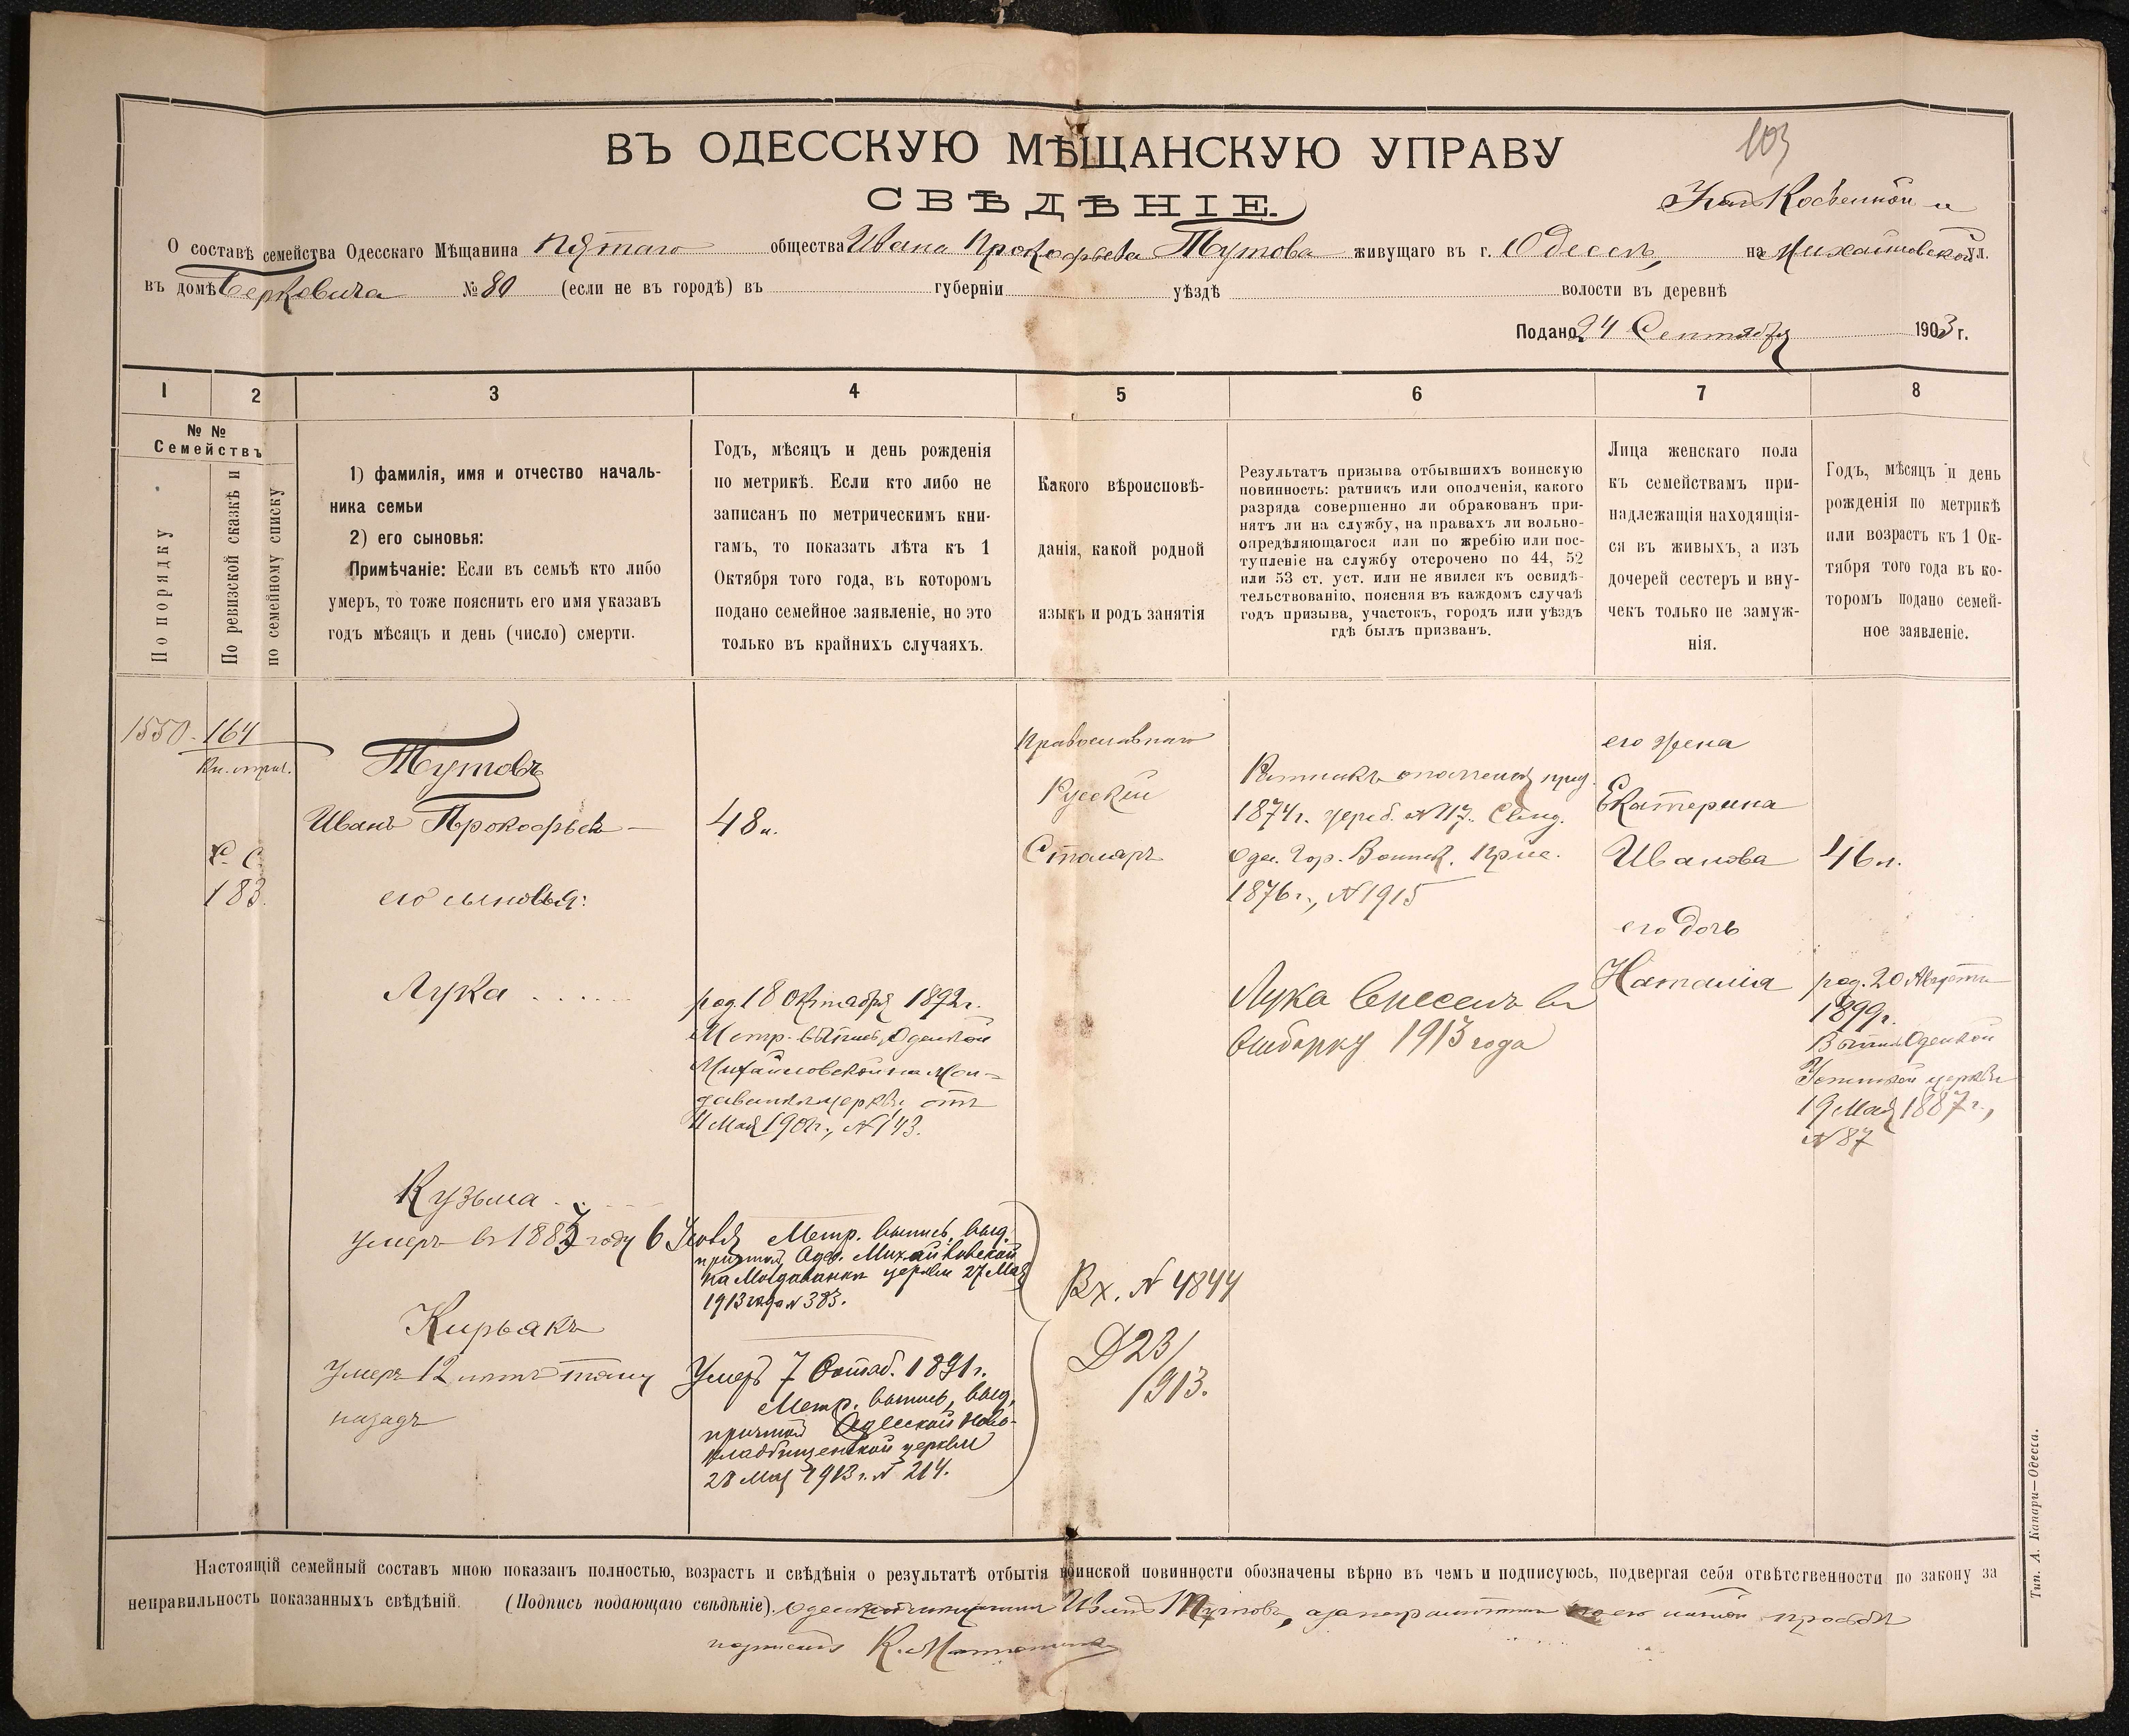 ВЪ ОДЕССКУЮ МѢЩАНСКУЮ УПРАВУ
103
СВѢДѢНІЕ.
Косвенной и
О составѣ семейства Одесскаго Мѣщанина Пятаго общества Ивана Прокофьева Тутова живущаго въ г. Одессѣ, на Михайловской ул.
въ домѣ Берковича № 80 (если не въ городѣ) въ губерніи уѣздѣ волости въ деревнѣ
Подано 24 Сентября 1903 г.
1 2 3 4 5 6 7 8
№ №
Семействъ
По порядку
По ревизской сказкѣ и
по семейному списку
1) фамилія, имя и отчество началь-
ника семьи
2) его сыновья:
Примѣчаніе: Если въ семьѣ кто либо
умеръ, то тоже пояснить его имя указавъ
годъ мѣсяцъ и день (число) смерти.
Годъ, мѣсяцъ и день рожденія
по метрикѣ. Если кто либо не
записанъ по метрическимъ кни-
гамъ, то показать лѣта къ 1
Октября того года, въ которомъ
подано семейное заявленіе, но это
только въ крайнихъ случаяхъ.
Какого вѣроисповѣ-
данія, какой родной
языкъ и родъ занятія
Результатъ призыва отбывшихъ воинскую
повинность: ратникъ или ополченія, какого
разряда совершенно ли обракованъ при-
нятъ ли на службу, на правахъ ли вольно-
опредѣляющагося или по жребію или пос-
тупленіе на службу отсрочено по 44, 52
или 53 ст. уст. или не явился къ освидѣ-
тельствованію, поясняя въ каждомъ случаѣ
годъ призыва, участокъ, городъ или уѣздъ
гдѣ былъ призванъ.
Лица женскаго пола
къ семействамъ при-
надлежащія находящія-
ся въ живыхъ, а изъ
дочерей сестеръ и вну-
чекъ только не замуж-
нія.
Годъ, мѣсяцъ и день
рожденія по метрикѣ
или возрастъ къ 1 Ок-
тября того года въ ко-
торомъ подано семей-
ное заявленіе.
1550 164
183.
Тутовъ
Иванъ Прокофьевъ
его сыновья:
Лука
Кузьма
умеръ въ 1883 году
Кирьакъ
умеръ 12 лѣтъ тому
назадъ
48 л.
род. 18 Октября 1892 г.
Метр. выпись Одесской
Михайловской на Мол-
даванкѣ церкви отъ
№ 143.
Метр. выпись, выд.
причтомъ Одес. Михайловской
на Молдаванкѣ церкви 27 Мая
1913 года № 383.
Умеръ 7 Октяб. 1891 г.
Метр. выпись, выд.
причтомъ Одесской Ново-
кладбищенской церкви
28 Мая 1913 г. № 214.
Православнаго
Русскій
Столяръ
Вх. № 4844
Д 23/
1913.
Ратникъ ополченія
1874 г. жереб. № 117. Свид.
Одес. Гор. Воинск. Прис.
1876 г., № 1915
Лука внесенъ въ
выборку 1913 года
его жена
Екатерина
Иванова
его дочь
Наталія
46 л.
род. 20 Августа
1899 г.
Выпись Одесской
Успенской церкви
19 Мая 1887 г.,
№ 87
Настоящій семейный составъ мною показанъ полностью, возрастъ и свѣдѣнія о результатѣ отбытія воинской повинности обозначены вѣрно въ чемъ и подписуюсь, подвергая себя отвѣтственности по закону за
неправильность показанныхъ свѣдѣній. (Подпись подающаго свѣдѣніе). Иванъ Тутовъ, а за неграмотнаго по его личной просьбѣ
Тип. А. Капари—Одесса.